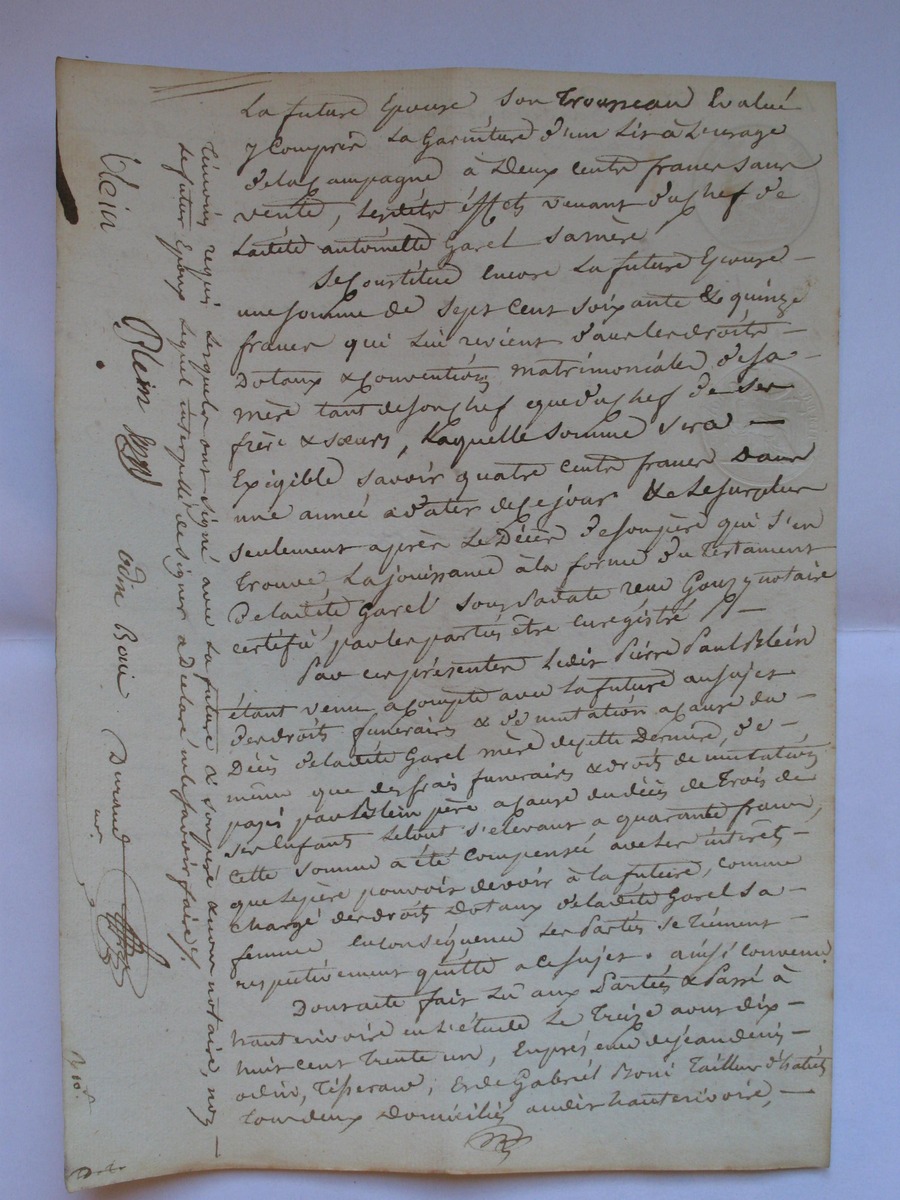 La future Epouse son Trousseau Evalué
y Compris La Garniture d'un Lit à Lusage
dela Campagne à Deux cents francs sans
vente, lesdits éffets venant duchef de
Ladite antoinette Garel Samère /
Se Constitue Encore La future Epouse –
une somme de sept cent soixante & quinze
francs qui Lui revient dans les droits –
Dotaux & Conventions matrimoniales desa –
mère tant desonchef queduchef de ses
frère & sœurs, Laquelle somme sera –
Exigible savoir quatre cents francs dans
une année adater decejour & Lesurplus
seulement après Le Décès desonpère qui s'en
trouve Lajouissance àla forme du Testament
Deladite Garel sous sadate reçu Gonzy notaire
certifié parlesparties être Enregistré /. –
Par cesprésentes Ledit Pierre Paul Blein
étant venu acompte avec Lafuture ausujet
desdroits funérairs & de mutation acause du
Décès deladite Garel mère decette Dernière, de –
même que des frais funérairs & droits de mutation
payés par Blein père acause dudécès de Trois de
ses Enfants Letout s'elevant a quarante francs,
Cette somme a été Compensée avec les intérêts –
quelepère pouvoit devoir àla future, comme
chargé desdroits Dotaux deladite Garel sa –
femme Enconséquence Les Parties se Tiennent –
respectivement quitte acesujet. ainsi convenu
Dontacte fait Lu aux Parties & Passé à
hauterivoire en L'étude Le Treize aout dix –
huit cent Trente un, Enprésence dejeandenis –
odin, Tisserand, & de Gabriel Boni Tailleur d'habits
Tousdeux Domiciliés audit hauterivoire, –
témoins requis Lesquels ont signé avec La future & sonpère & nous notaire, non –
Lefutur Epoux Lequel interpellé designer adéclaré nelesavoirfaire /.
Blein Blein odin Boni Durand
nre.